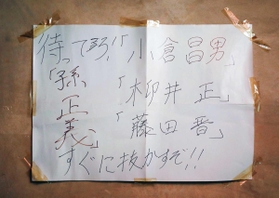 待ってろ!!「小倉昌男」
孫正義
「柳井 正」
「藤田 晋」
すぐに抜かすぞ!!